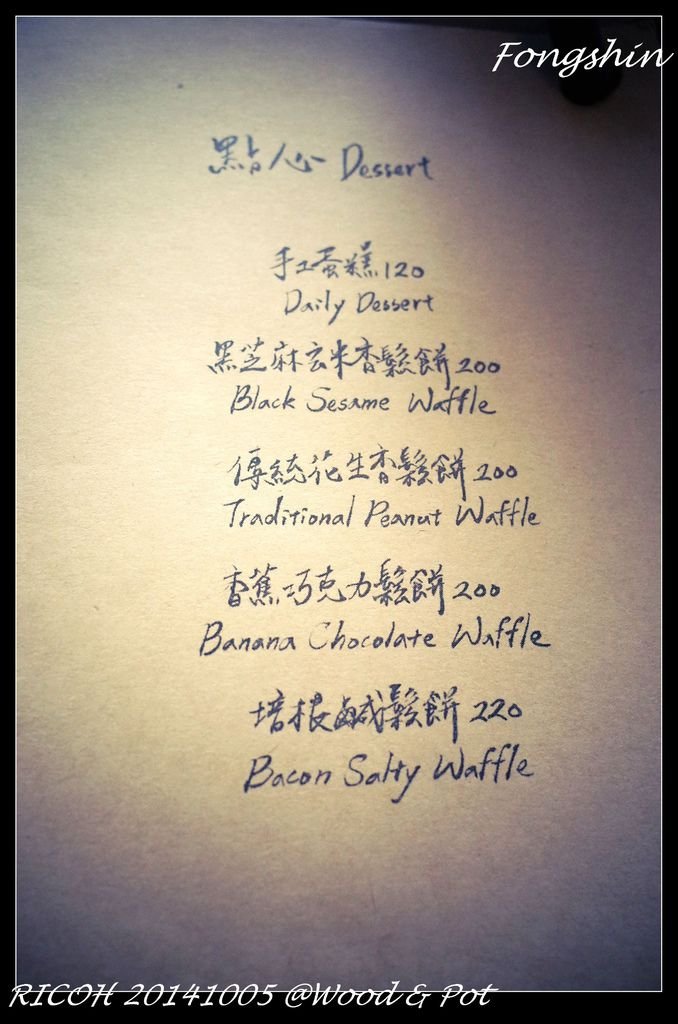 Fongshin
點心 Dessert
手工蛋糕 120
Daily Dessert
黑芝麻玄米香鬆餅 200
Black Sesame Waffle
傳統花生香鬆餅 200
Traditional Peanut Waffle
香蕉巧克力鬆餅 200
Banana Chocolate Waffle
培根鹹鬆餅 220
Bacon Salty Waffle
RICOH 20141005 @Wood & Pot